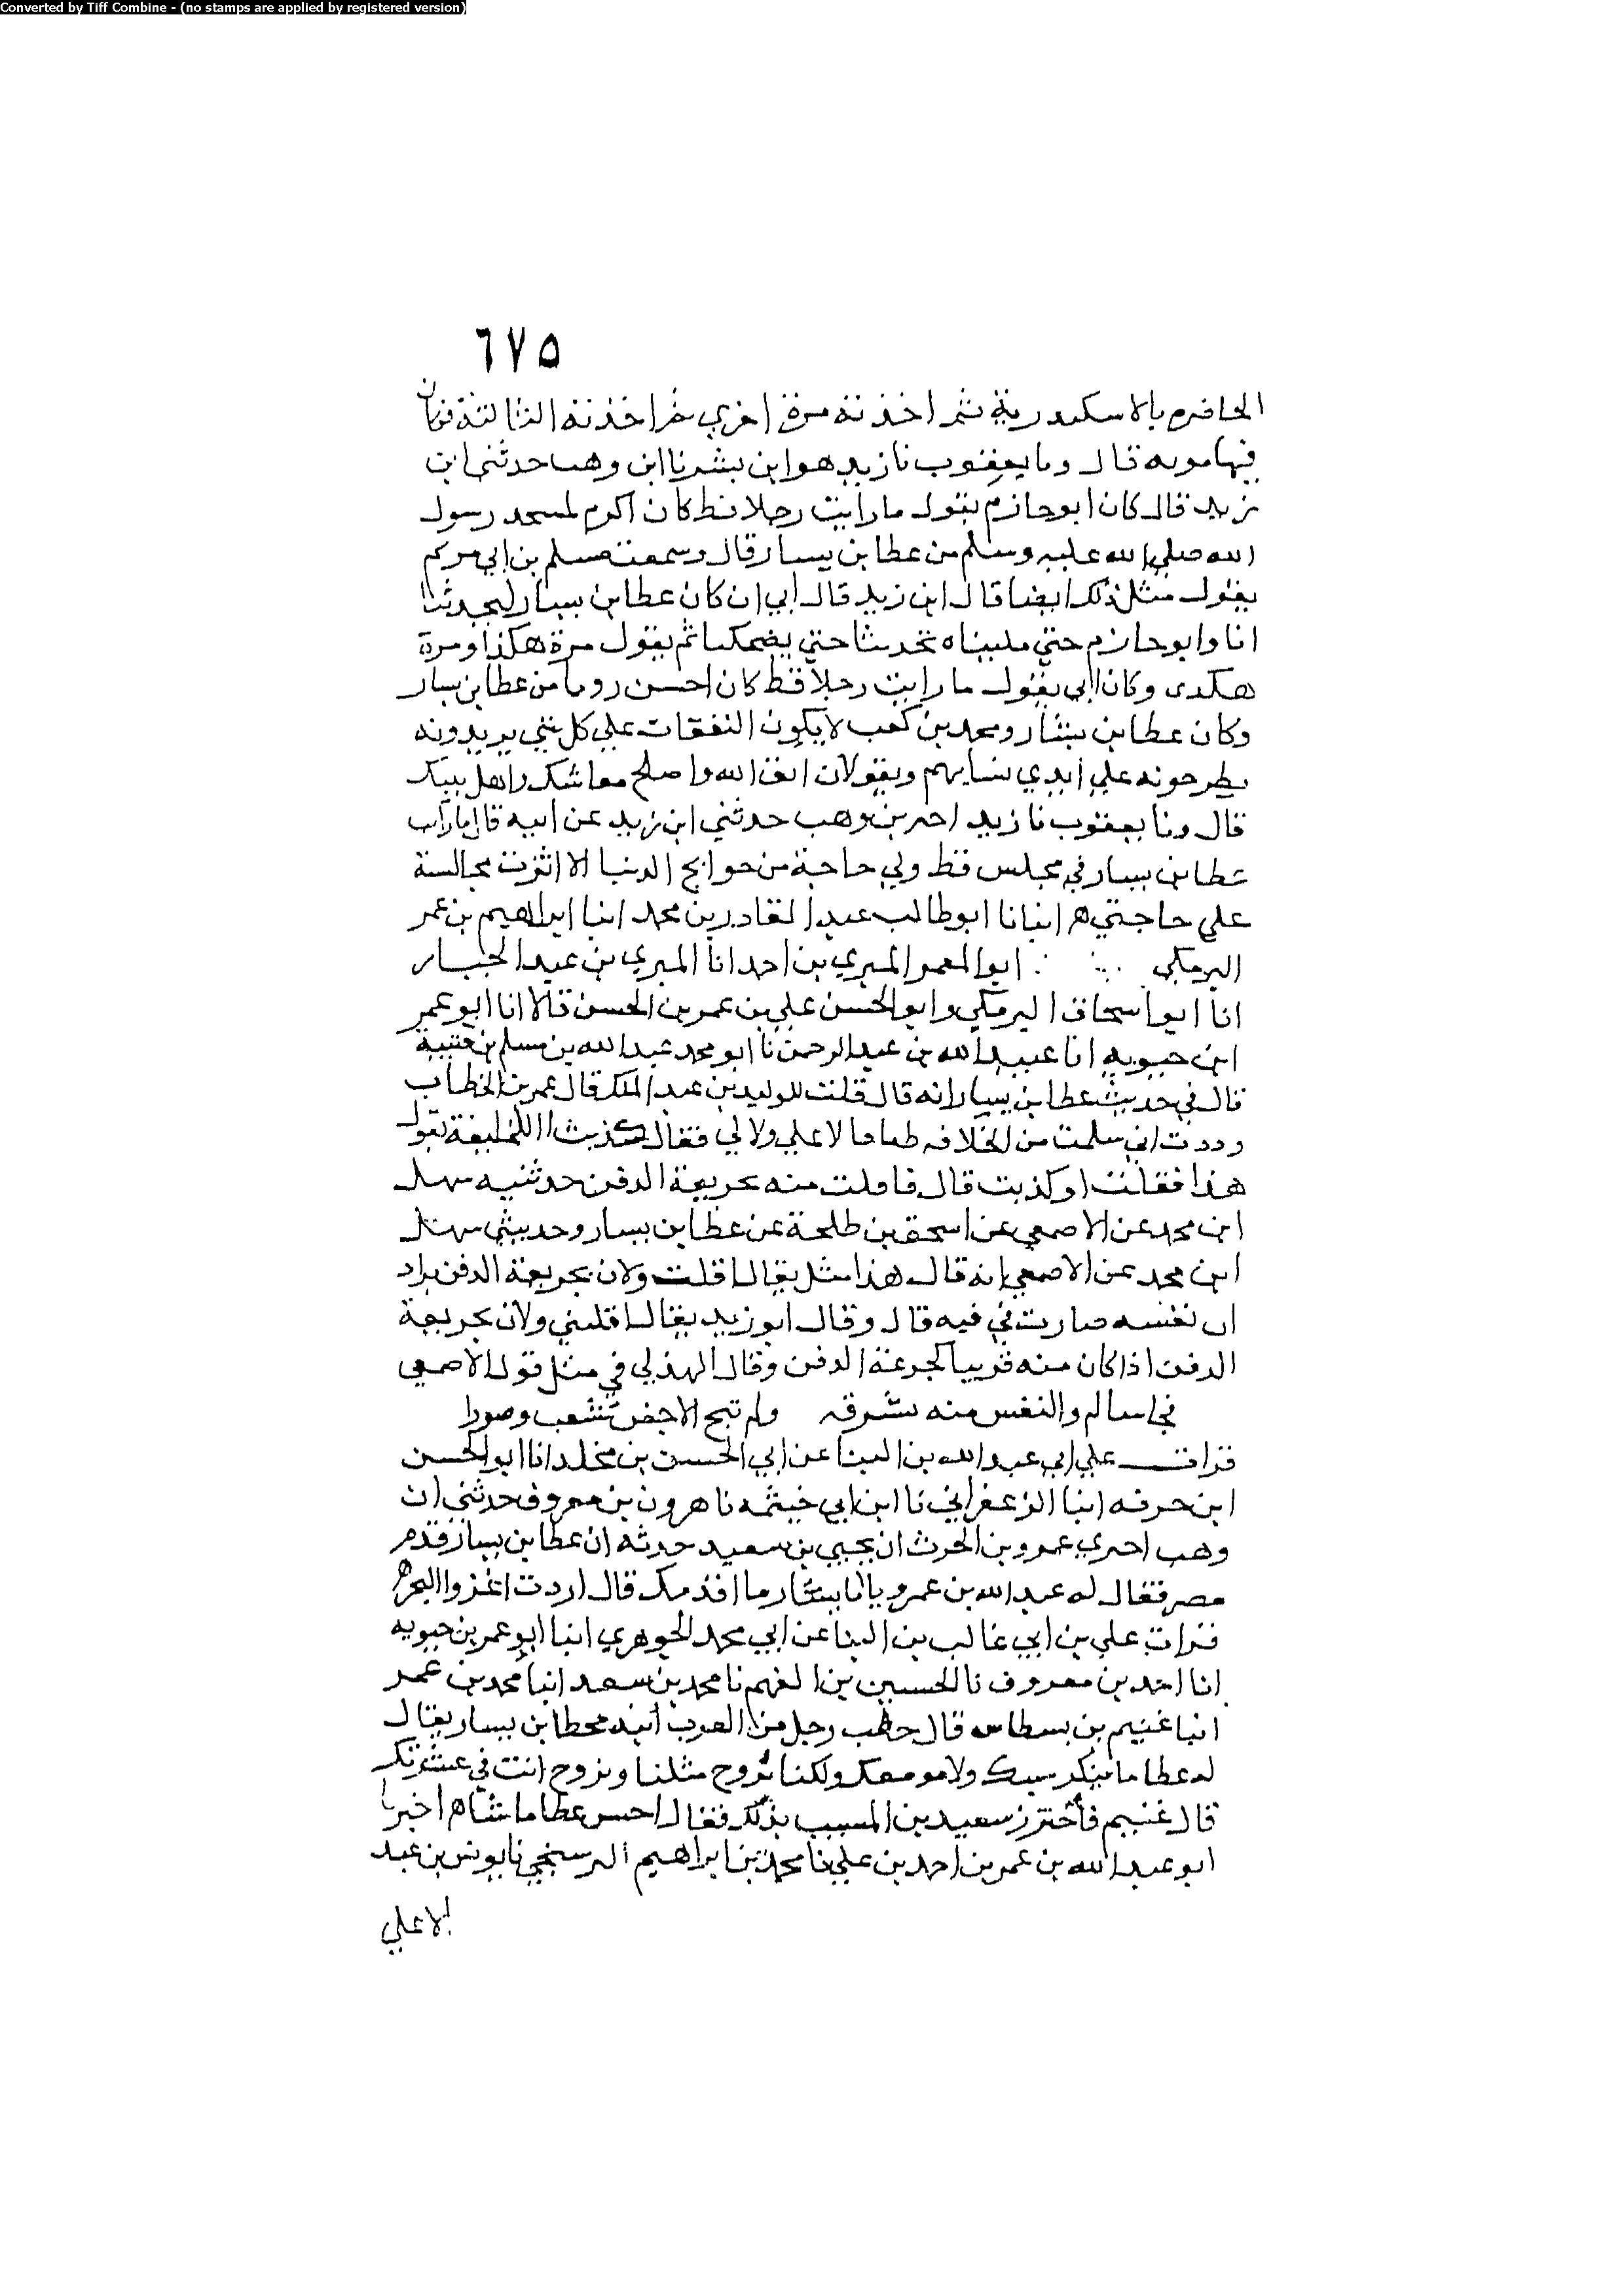 Converted by Tiff Combine - (no stamps are applied by registered version)
٦٧٥
بالاسكندرية ثم اخذته مرة اخري ثم اخذته الثالثة فكان
فيها موته قال ونا يعقوب نا زيد هو ابن بشر نا ابن وهب حدثني ابن
زيد قال كان ابو حازم يقول ما رايت رجلا قط كان اكرم لمسجد رسول
الله صلي الله عليه وسلم من عطا بن يسار قال وسمعت مسلم بن ابي مريم
يقول مثل ذلك ايضا قال ابن زيد قال ابي ان كان عطا بن يسار ليحدثنا
انا وابو حازم حتي يحدثنا حتي يضحكنا ثم يقول مرة هكذا ومرة
هكدى وكان ابي يقول ما رايت رجلا قط كان احسن من عطا بن يسار
وكان عطا بن يسار ومحمد بن كعب النفقات علي كل شي يريدونه
يطرحونه علي ايدي نسايهم ويقولان اتق الله واصلح معاشك واهل بيتك
قال ونا يعقوب نا زيد بن وهب حدثني ابن زيد عن ابيه قال ما رايت
عطا بن يسار في مجلس قط ولي حاجة من حوايج الدنيا الا اثرت مجالسة
علي حاجتي ه انبانا ابو طالب عبد القادر بن محمد انبا ابراهيم بن عمر
البرمكي ابو المعمر المبري بن احمد انا المبري بن عبد الجبار
انا ابو اسحاق البرمكي وابو الحسن علي بن عمر بن الحسن قالا انا ابو عمر
ابن حيويه انا عبيد الله بن عبد الرحمن نا ابو محمد عبد الله بن مسلم بن قتيبة
قال في حديث عطا بن يسار انه قال قلت للوليد بن عبد الملك قال عمر بن الخطاب
وددت اني سلمت من الخلافه لا علي ولا لي فقال كذبت االخليفة يقول
هذا فقلت او كذبت قال فافلت منه بجريعة الدقن حدثنيه سهل
ابن محمد عن الاصمعي عن اسحق بن طلحة عن عطا بن يسار وحديثي سهل
ابن محمد عن الاصمعي انه قال هذا مثل يقال افلت فلان بجريعة الدقن يراد
ان نفسه صارت في فيه قال وقال ابو زيد يقال افلتني فلان بجريعة
الدقن اذا كان منه قريبا كجرعة الدقن وقال الهذلي في مثل قول الاصمعي
نجا سالم والنفس منه بشدقه ولم ينج الا جفن
قرات علي ابي عبد الله بن البنا عن ابي الحسن بن مخلد انا ابو الحسن
ابن خزفه انبا الزعفراني نا ابن ابي خيثمه نا هرون بن معروف حدثني ابن
وهب اخبري عمرو بن الحرث ان يحيي بن سعيد حدثه ان عطا بن يسار قدم
مصر فقال له عبد الله بن عمرو يا ابا يسار ما اقدمك قال اردت اغزوا البحر ه
قرات علي بن ابي غالب بن البنا عن ابي محمد الجوهري انبا ابو عمر بن حيويه
انا احمد بن معروف نا الحسين بن الفهم نا محمد بن سعد انبا محمد بن عمر
انبا غنيم بن بسطاس قال خطب رجل من العرب ابنة عطا بن يسار يقال
له عطا ما ننكر نسبك ولا موضعك ولكنا نزوج مثلنا وتزوج انت في عشيرتك
قال غنيم فاخبرت سعيد بن المسيب بذلك فقال احسن عطا ما شا ه اخبرنا
ابو عبد الله بن عمر بن احمد بن علي نا محمد بن ابراهيم نا يونس بن عبد
الاعلي